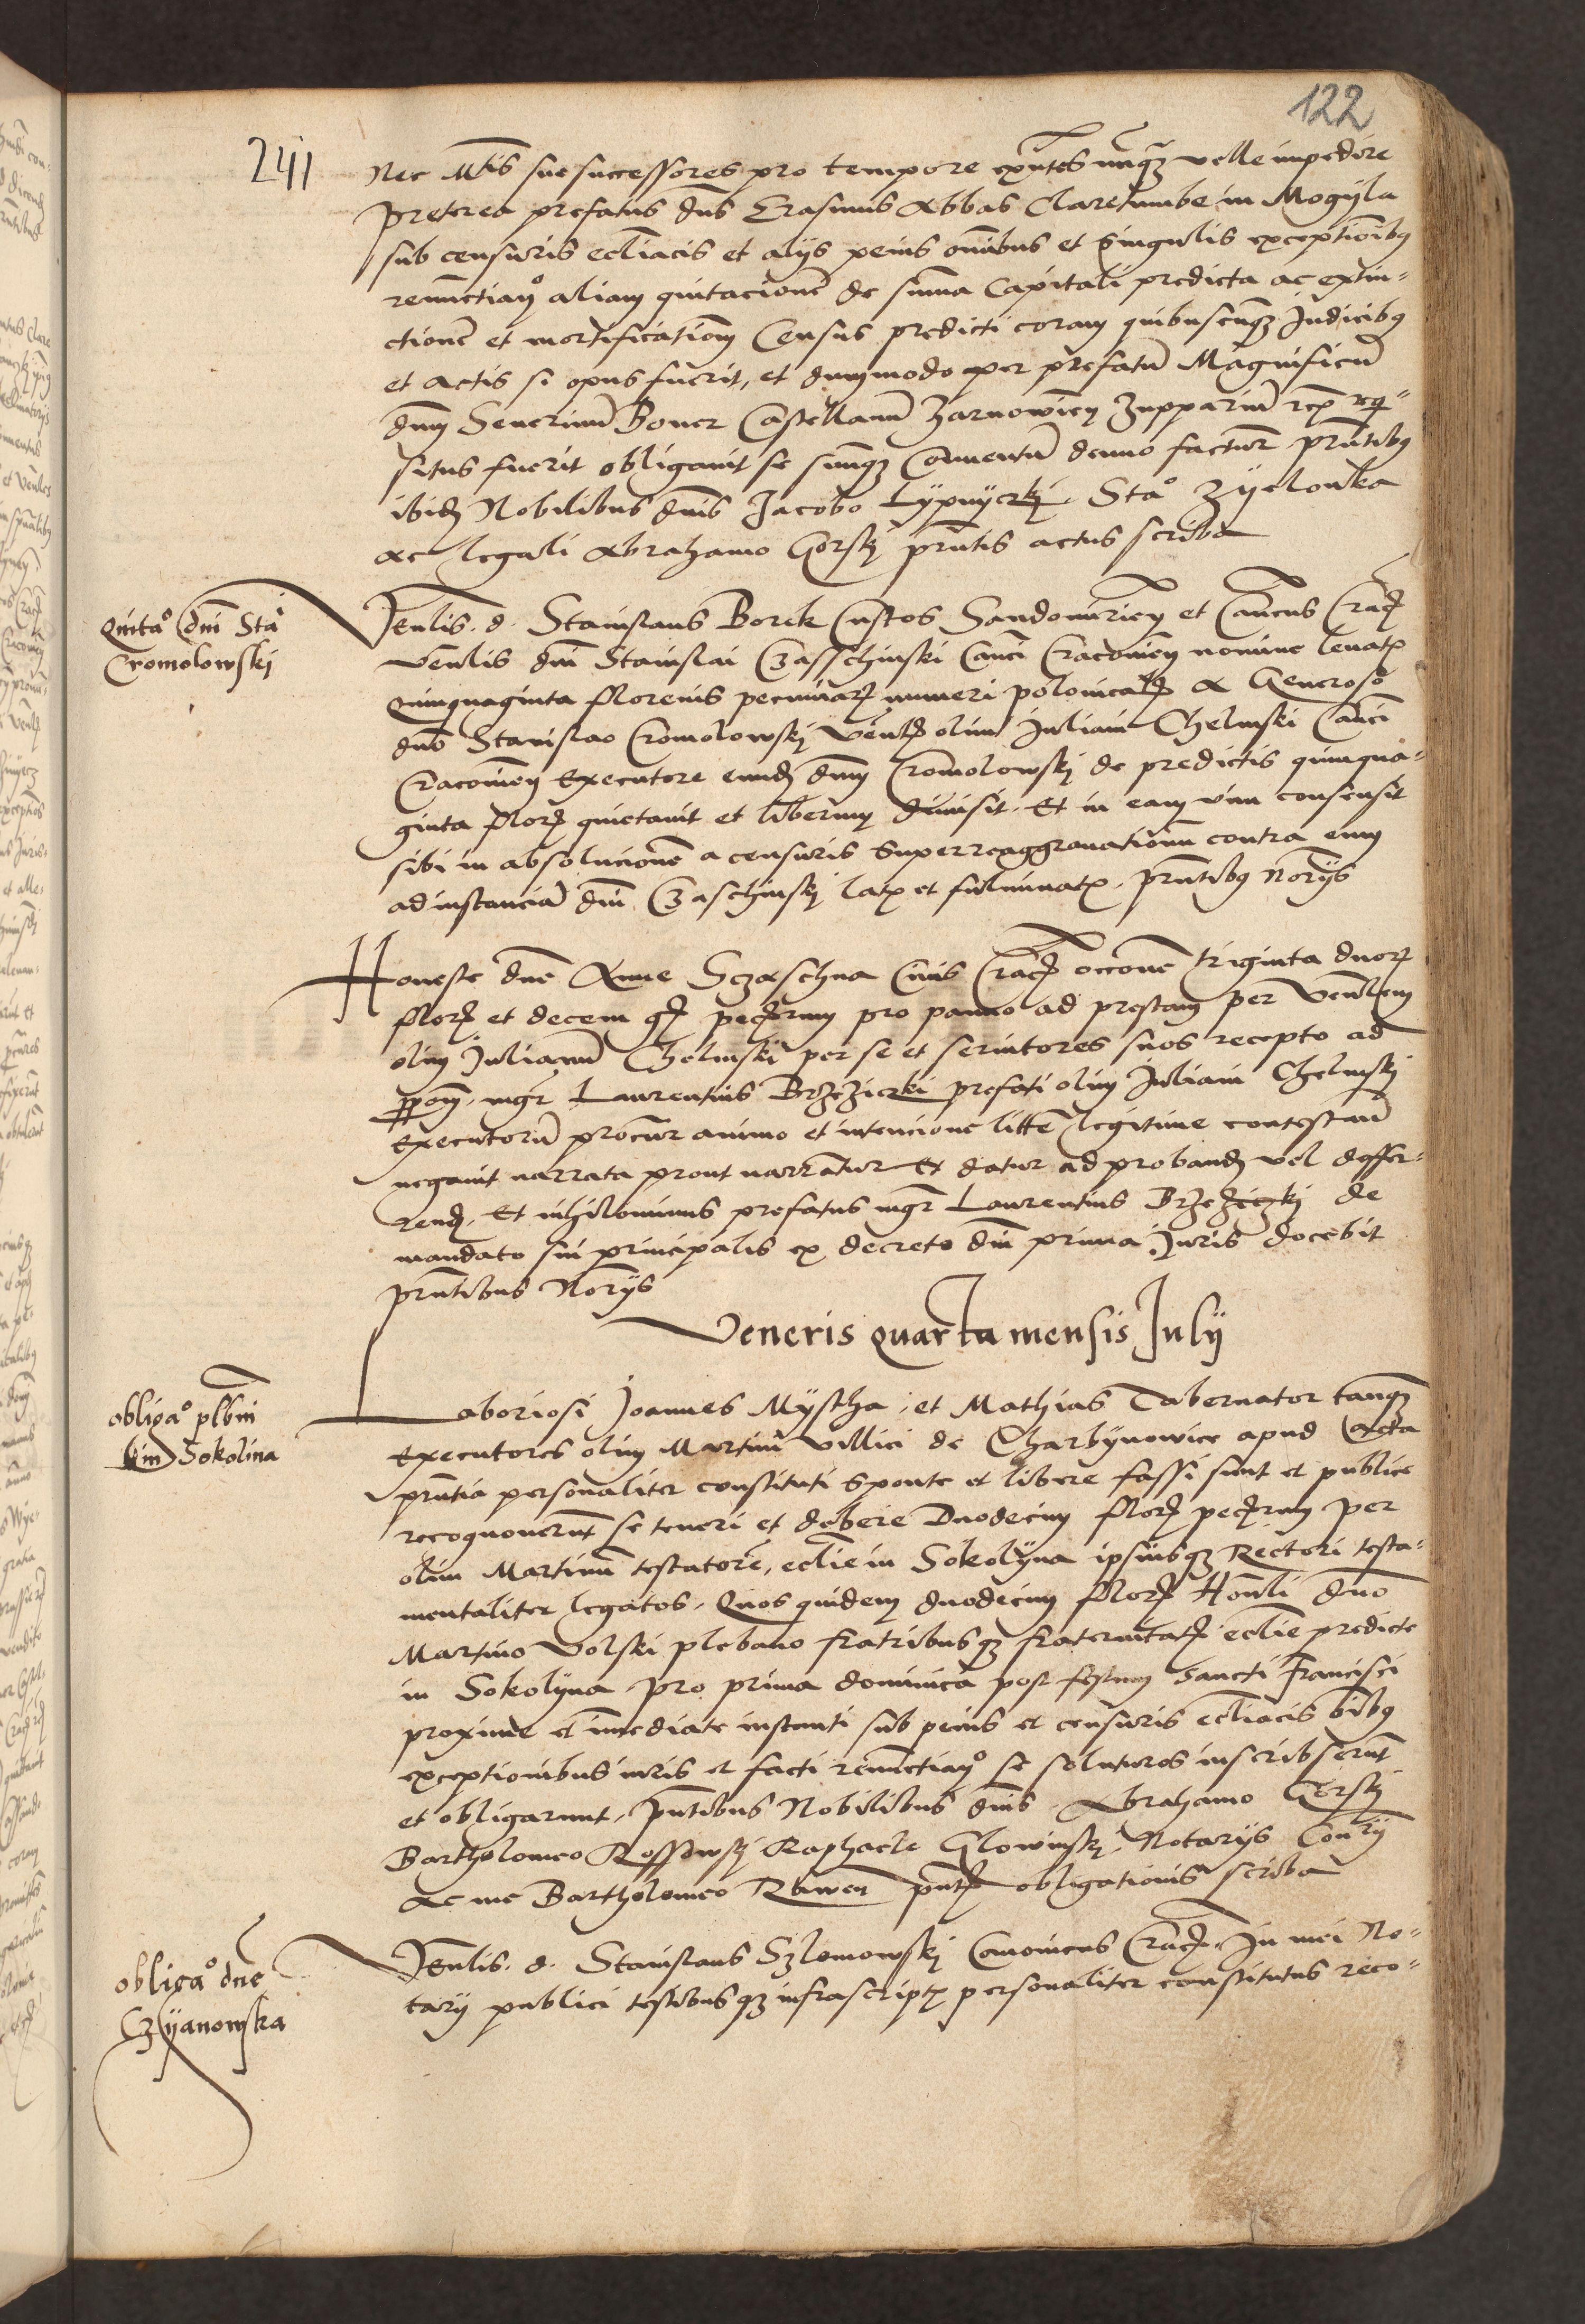 122
241
Nec Mtis sue successores pro tempore exntes unqȝ velle impedire
preterea prefatus dns Erasmus Abbas Claretumbe in Mogyla
sub censuris eccliacis et alys penis omibus et singulis exceptionibȝ
renunctian° aliam quitacionē de suma Capitali predicta ac extin-
ctionē et mortificationem Census predicti coram quibuscunqȝ Judicibȝ
et actis si opus fuerit, et dummodo per prefatū Magnificū
dnm Seuerinū Boner Castellanū Zarnowien Zupparium requi-
situs fuerit obligauit se suumqȝ Conuentū denuo facturū pntibȝ
ibidem Nobilibus dnis Jacobo Lypnyczkj Sta° Zyelonka
ac legali Abrahamo Gorskj pntis actus scriba
Quita° dni Sta
Cromolowskj
Venlis. d. Stanislaus Borek Custos Sandomirien et Canicus Crac
venlis dni Stanislai Czasschinski Canci Cracouien nomine leuatis
Quinquaginta florenis pecuniarum numeri polonicalis a Generoso
dno Stanislao Cromolowskj venlis olim Juliani Chelmski Canci
Cracouien executore eundem dnm Cromolowskj de predictis quinqua-
ginta flor quietauit et liberum dimisit. Et in eam vim consensit
sibi in absolucionē a censuris superreaggrauationum contra eum
ad instanciā dni Czaschinskj latis et fulminatis. pntibȝ Norys
Honeste dne Anne Sczaschna Ciuis Crac occonē triginta duor
flor et decem gr pecuniarum pro panno ad prestam per venlem
olim Julianū Chelmski per se et seruitores suos recepto ad
ppom. mgr Laurentius Brzeziczki prefati olim Juliani Chelmskj
executorū procur animo et intencione litē legitime contestan
negauit narrata prout narrantur Et datur ad proband vel deffer-
rend. Et nihilominus prefatus mgr Laurentius Brzeziczkj de
mandato sui principalis ex decreto dni prima Juris docebit
pntibus Norys
Veneris quarta mensis July
obliga° plbni
in Sokolina
Laboriosi Joannes Mystha, et Mathias Tabernator tanqȝ
executores olim Martini villici de Charbynowice apud Acta
pntia personaliter constituti sponte et libere fassi sunt et publice
recognouerunt se teneri et debere Duodecim flor pecuniarum per
olim Martinū testatorē, ecclie in Sokolyna ipsiusqȝ Rectori testa-
mentaliter legatos. Quos quidem duodecim flor Honli dno
Martino Volski plebano fratribusqȝ fraternitatis ecclie predicte
in Sokolyna pro prima dominica post festum Sancti Francisci
proxime et immediate instanti sub penis et censuris eccliacis oibȝ
exceptionibus iuris et facti renunctian° se soluturos inscribserunt
et obligarunt. pntibus Nobilibus dnis. Abrahamo Gorskj
Bartholomeo Rossowskj Raphaele Glowinskj. Notarys Conry
ac me Bartholomeo Rawen pntis obligationis scriba
obliga° dne
Czyanowska
Venlis. d. Stanislaus Szlomowskj Canonicus Crac. In mei No-
tary publici testibusqȝ infrascriptis personaliter constitutus reco-